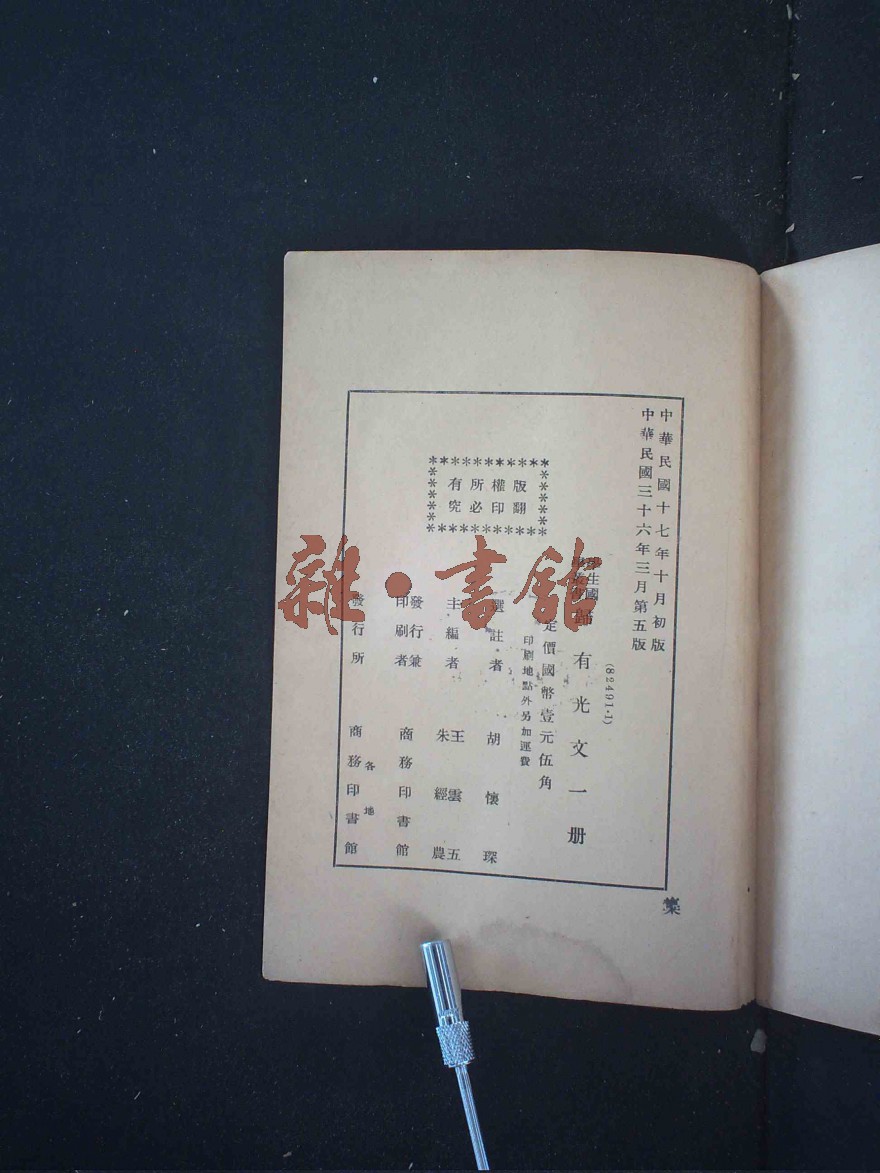 中華民國十七年十月初版
中華民國三十六年三月第五版
(82491·1)
學生國學叢書
歸有光文一册
定價國幣壹元伍角
印刷地點外另加運費
版權所有
翻印必究
選註者 胡懷琛
主編者 王雲五 朱經農
發行兼印刷者 商務印書館
發行所 各地 商務印書館
雜·書館